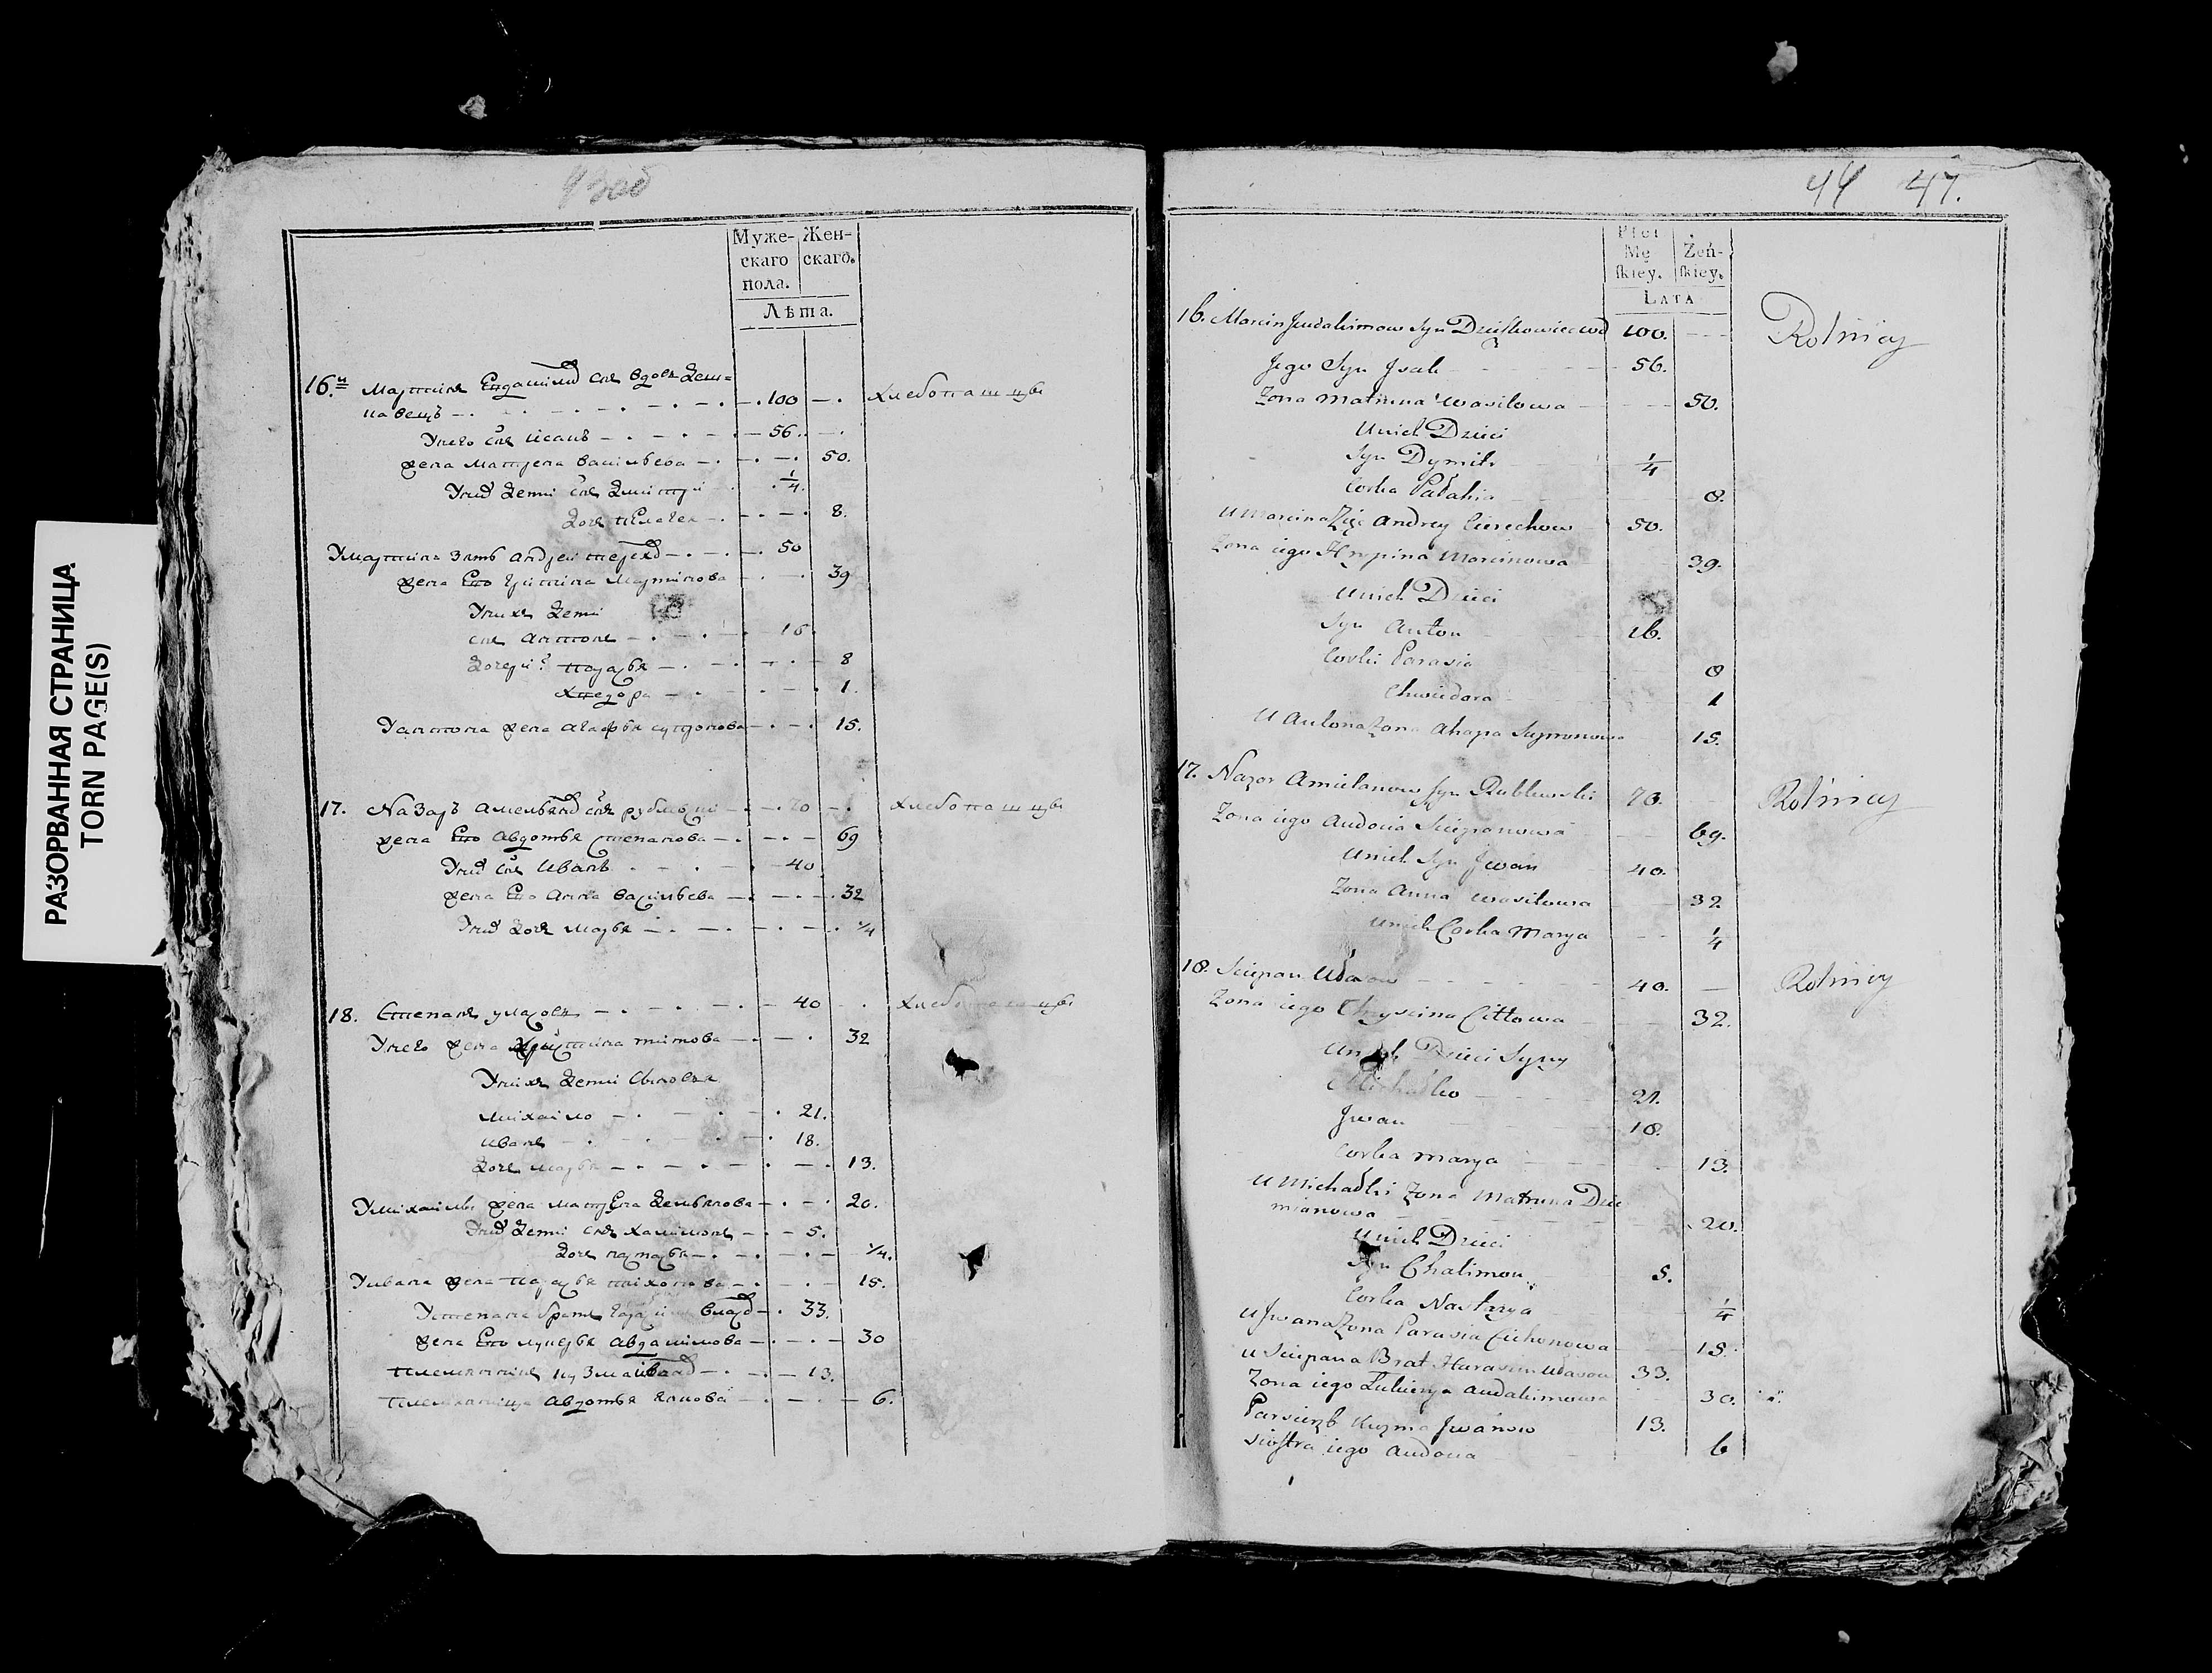 РАЗОРВАННАЯ СТРАНИЦА
TORN PAGE(S)
43об
Муже- Жен-
скаго скаго.
пола.
Лѣта.
16.й Мартинъ снъ вдовъ Деш=
100 хлебопашцы
У него снъ Исакъ 56.
жена Матрена Васильева 50.
У нихъ дети снъ Дмитри 1/4.
дочь Пелагея 8.
У Мартина зять Андреи 50
жена Его Мартинова 39
У нихъ дети
снъ Антонъ 16.
дочери: Парасья 8
Хведора 1.
У Антона жена Агафья 15.
17. Назаръ снъ 70 хлебопашцы
жена Его Авдотья Степанова 69
У нихъ снъ Иванъ 40
жена Его Анна Васильева 32
У нихъ дочь Марья 1/4
18. Степанъ 40 хлебопашцы
У него жена Христина Титова 32
У нихъ дети сыновья
Михаило 21.
Иванъ 18.
дочь Марья 13.
У Михаилы жена Матрена Демьянова 20.
У нихъ дети снъ Халимонъ 5.
дочь 1/4.
У Ивана жена Парасья Тихонова 15.
У Степана братъ 33.
жена Его Лукерья Авдакимова 30
племянникъ Кузма Иванов 13.
племянница Авдотья 6.
44 47.
Płci
Mę Żeń-
ſkiey. ſkiey.
LATA
16. Marcin Syn 100. Rolnicy
Jego Syn Jsak 56.
Żona Matruna Wasilowa 50.
U nich Dzieci
Syn Dymitr 1/4
Corka Pałahia 8.
U Marcina Zięć Andrey Cierechow 50.
Żona iego Hrypina Marcinowa 39.
U nich Dzieci
Syn Anton 16.
Corki Parasia 8
Chwiedora 1
U Antona Żona Ahapa 15.
17. Nazar Amielanow Syn Rublewski 70. Rolnicy
Żona iego Audocia Sciepanowa 69.
U nich Syn Jwan 40.
Żona Anna Wasilowa 32
U nich Corka Marya 1/4
18. Sciepan Ułasow 40. Rolnicy
Żona iego Chryscina Cittowa 32.
U nich Dzieci Syny
Michałko 21.
Jwan 18.
Corka Marya 13.
U Michałki Żona Matruna Dzie
mianowa 20.
U nich Dzieci
Syn Chalimon 5.
Corka Nastazya 1/4
U Jwana Żona Parasia Cichonowa 15.
U Sciepana Brat Harasim Ułasow 33.
Żona iego Łukierya Audakimowa 30.
Kuzma Jwanow 13.
Siostra iego 6